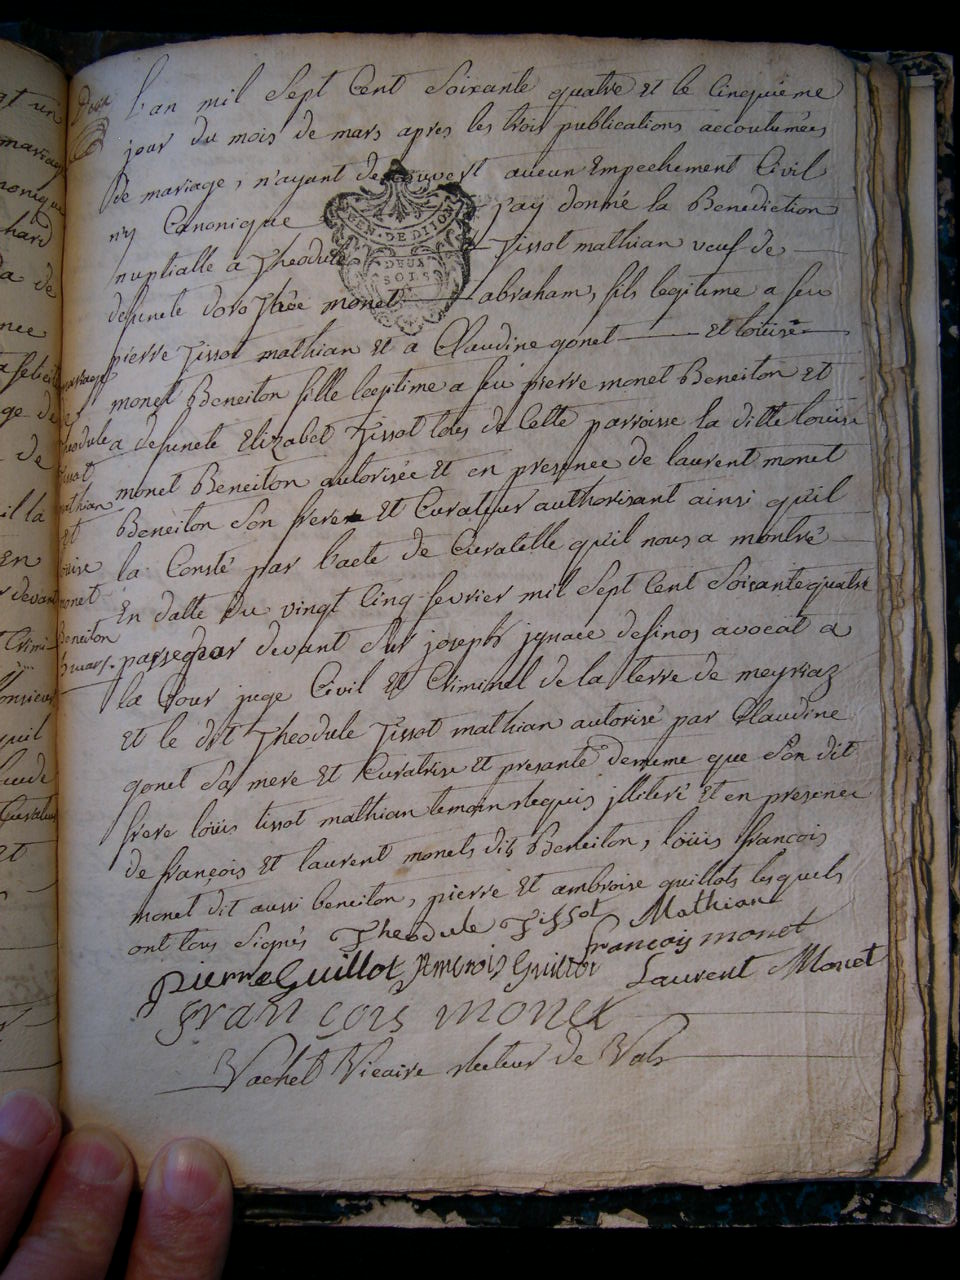 L'an mil Sept Cent Soixante quatre Et le Cinquieme
jour du mois de mars apres les trois publications accoutumées
de mariage, n'ayant decouvert aucun Empechement Civil
ny Canonique j'ay donné la Benediction
GEN. DE DIJON
DEUX
SOLS
nuptialle a Theodule Tissot mathian veuf de
defuncte dorothée monet abraham, fils legitime a feu
pierre Tissot mathian Et a Claudine gonet Et louise
monet Beneiton fille legitime a feu pierre monet Beneiton Et
a defuncte Elizabet Tissot tous de Cette parroisse la ditte louise
monet Beneiton autorisée Et en presence de laurent monet
Beneiton Son frere Et Curateur authorisant ainsi qu'il
la Consté par l'acte de Curatelle qu'il nous a montré
En datte du vingt Cinq fevrier mil Sept Cent Soixante quatre
par devant Sur joseph ignace desinos avocat a
la Cour juge Civil Et Criminel de la terre de meyriaz
Et le dit Theodule Tissot mathian autorisé par Claudine
gonet Sa mere Et Curatrise Et presante demême que Son dit
frere loüis tissot mathian temoin requis jlliteré Et en presence
de françois Et laurent monets dit Beneiton, loüis françois
monet dit aussi beneiton, pierre Et ambroise guillots lesquels
ont tous Signés Theodule Tissot Mathian
françois monet
pierre Guillot Ambrois Guillot Laurent Monet
françois monet
Vachet Vicaire recteur de Vals
mariage
de
theodule
tissot
mathian
Et
louise
monet
beneiton
5 mars